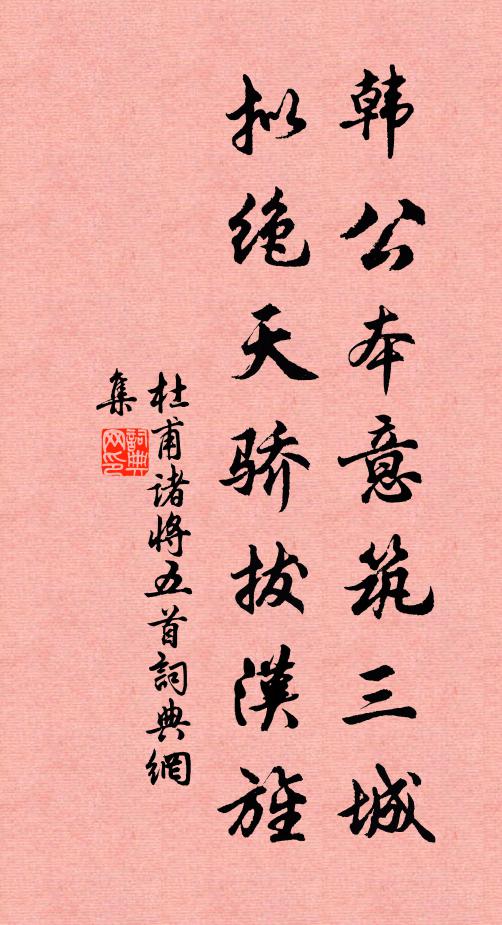 韩公本意筑三城
拟绝天骄拔漢旌
杜甫诸将五首詞典網
集
詞典网印